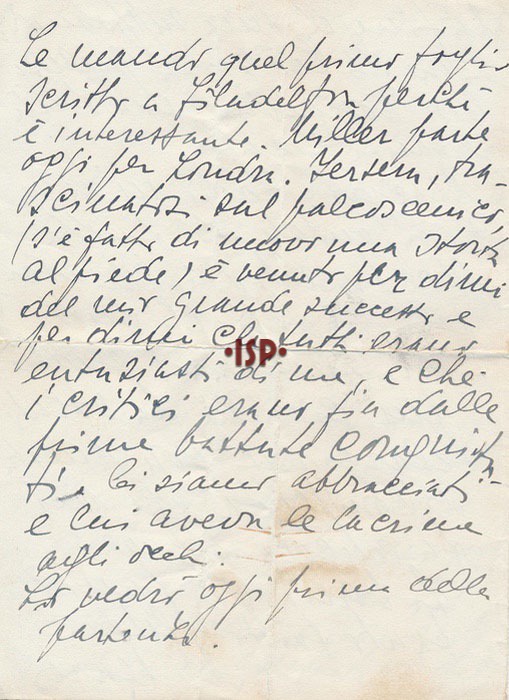 Le mando quel primo foglio
scritto a Filadelfia perchè
è interessante. Miller parte
oggi per Londra. Iersera, tra-
scinatosi sul palcoscenico,
(s'è fatto di nuovo una storta
al piede) è venuto per dirmi
del mio grande successo e
per dirmi che tutti erano
·ISP·
entusiasti di me, e che
i critici erano fin dalle
prime battute conquista-
ti. Ci siamo abbracciati
e lui aveva le lacrime
agli occhi.
Lo vedrò oggi prima della
partenza.